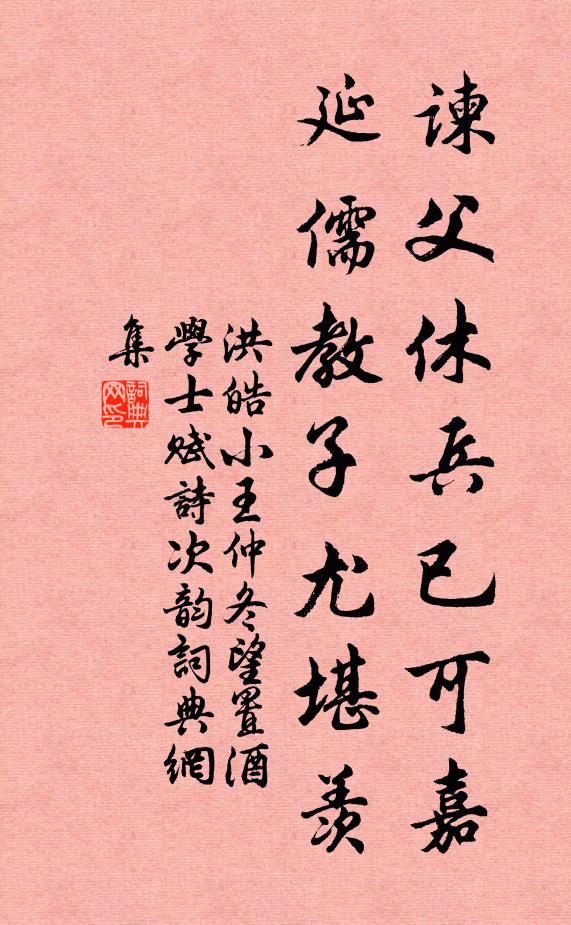 諫父休兵已可嘉
延儒教子尤堪羨
洪皓小王仲冬望置酒
學士賦詩次韵詞典網
集
詞典网印